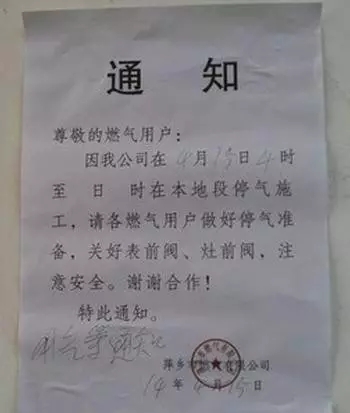 通 知
尊敬的燃气用户：
因我公司在4月15日4时
至 日 时在本地段停气施
工，请各燃气用户做好停气准
备，关好表前阀、灶前阀，注
意安全。谢谢合作！
特此通知。
用气等通知
萍乡市燃气有限公司
14年4月15日